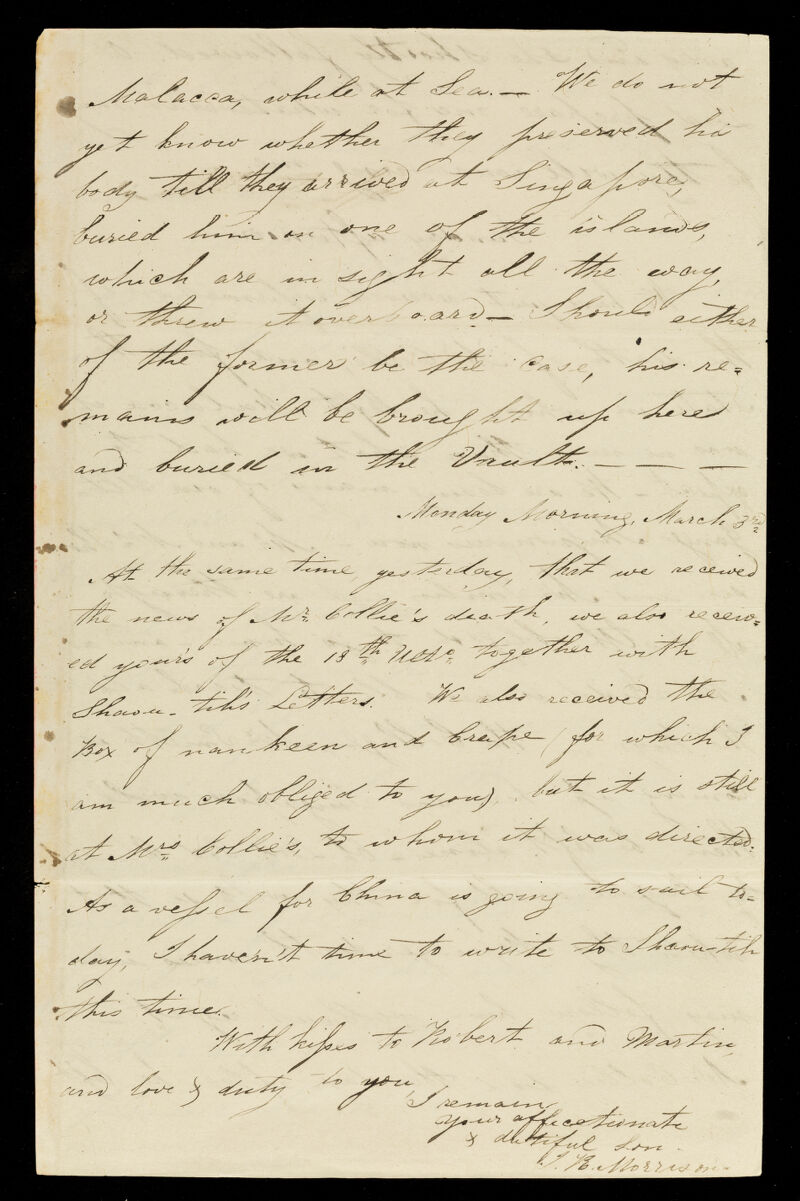 Malacca, while at Sea.— We do not
yet know whether they preserved his
body till they arrived at Singapore,
buried him on one of the islands,
which are in sight all the way,
or threw it overboard— Should either
of the former be the case, his re=
mains will be brought up here
and buried in the Vault. — — —
Monday Morning, March 3rd
At the same time yesterday, that we received
the news of Mr. Collie's death, we also receiv=
ed your's of the 18th Ulto. together with
Shaou-tih's Letters. We also received the
Box of nankeen and Crape (for which I
am much obliged to you) but it is still
at Mrs. Collie's, to whom it was directed.
As a vessel for China is going to sail to=
day, I haven't time to write to Shaou-tih
this time.
With kisses to Robert and Martin,
and love & duty to you,
I remain
your affectionate
& dutiful son.
J. R. Morrison.